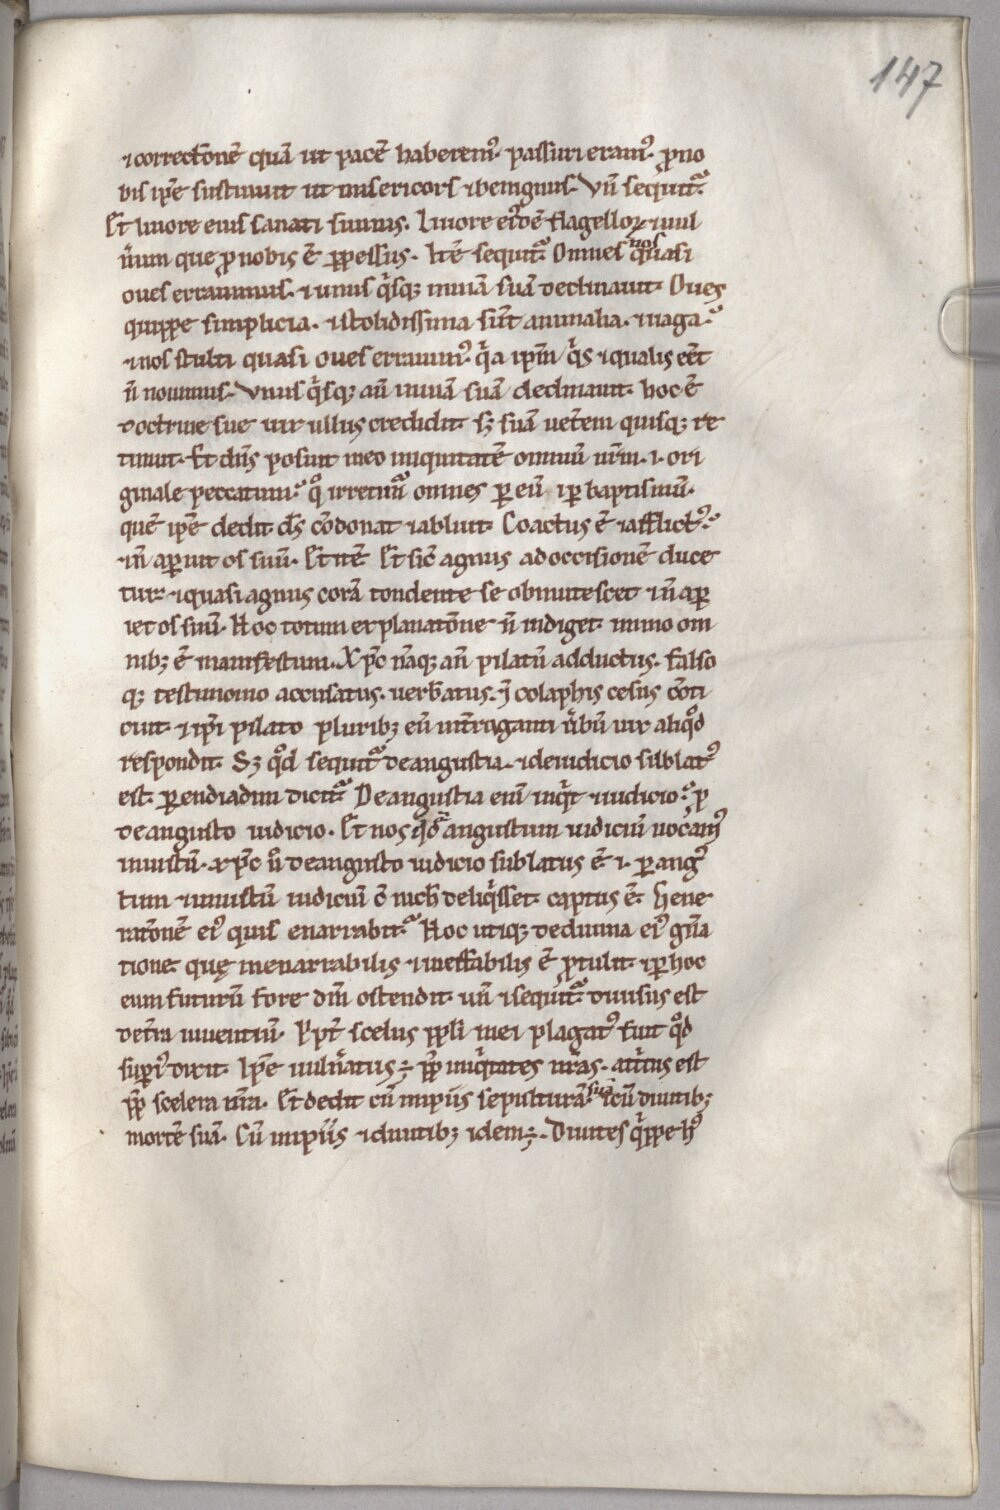 147
⁊ correctōnē quā ut pacē haberemꝰ. passuri eramꝰ. ꝓ no
bis ip̄e sustinuit ut misericors ⁊ benignus. Vn̄ sequit᷑.
Et liuore eius sanati sumus. Liuore eiꝰdē flagelloꝝ ⁊ uul
n̄um que ꝓ nobis ē ꝑpessus. Itē sequit᷑. Omnes nos quasi
oues errauimus. ⁊ unus qͥsqꝫ in uiā suā declinauit. Oues
quippe simplicia. ⁊ stolidissima sūt animalia. ⁊ uaga.
⁊ nos stulti quasi oues errauimꝰ. qͥa ip̄m qͥs ⁊ qualis eēt
n̄ nouimus. Vnus qͥsqꝫ aū in uiā suā declinauit. hoc ē
doctrine sue uix ullus credidit. sꝫ suā uetēem quisqꝫ re
tinuit. Et dn̄s posuit in eo iniquitatē omniū nr̄m. .i. ori
ginale peccatum. qͦ irretiti᷑ omnes ꝑ eū ⁊ ꝑ baptismū.
quē ip̄e dedit ds̄ cōdonat ⁊ abluit. Coactus ē ⁊ afflictꝰ.
⁊ n̄ aꝑuit os suū. Et itē Et sic̄ agnus ad occisionē duce
tur. ⁊ quasi agnus corā tondente se obmutescet ⁊ n̄ aꝑ
iet os suū. Hoc totum explanatōne n̄ indiget. immo om
nibꝫ ē manifestum. Xp̄c nāqꝫ an̄ pilatū adductus. falso
qꝫ testimonio accusatus. uerb̄atus. ⁊ colaphis cesus cōti
cuit. ⁊ ip̄i pilato pluribꝫ eū int̄roganti u̅bū uix aliqͦd
respondit. Sꝫ qͦd sequit᷑ de angustia. ⁊ de iudicio sublatꝰ
est. ꝑ endiadin dicit᷑. De angustia eni inqͥt ⁊ iudicio. ꝓ
de angusto iudicio. Et nos qͥdā angustum iudiciū uocamꝰ
iniustū. xp̄c u̅ de angusto iudicio sublatus ē .i. ꝑ angꝰ
tum ⁊ iniustū iudiciū c̄ nich̄ deliqͥsset. captus ē. Gene
ratōnē eiꝰ quis enarrabit. Hoc utiqꝫ de diuina eiꝰ gn̄a
tione. quę inenarrabilis ⁊ ineffabilis ē ꝓtulit. ⁊ ꝑ hoc
eum futurū fore dm̄ ostendit. un̄ ⁊ sequit᷑. diuisus est
de t̄ra uiuentiū. Ppt̄ scelus ppl̄i mei plagatꝰ fuit. qͦd
suꝑiꝰ dixit. Ip̄e uuln̄atus ÷ ꝓp̄ iniqͥtates nr̄as. attͥtus est
ꝓp̄ scelera nr̄a. Et dedit cū impiis sepulturā suā ⁊ cū diuitibꝫ
mortē suā. Cū impiis ⁊ diuitibꝫ idem ÷. Diuites qͥppe hͦ